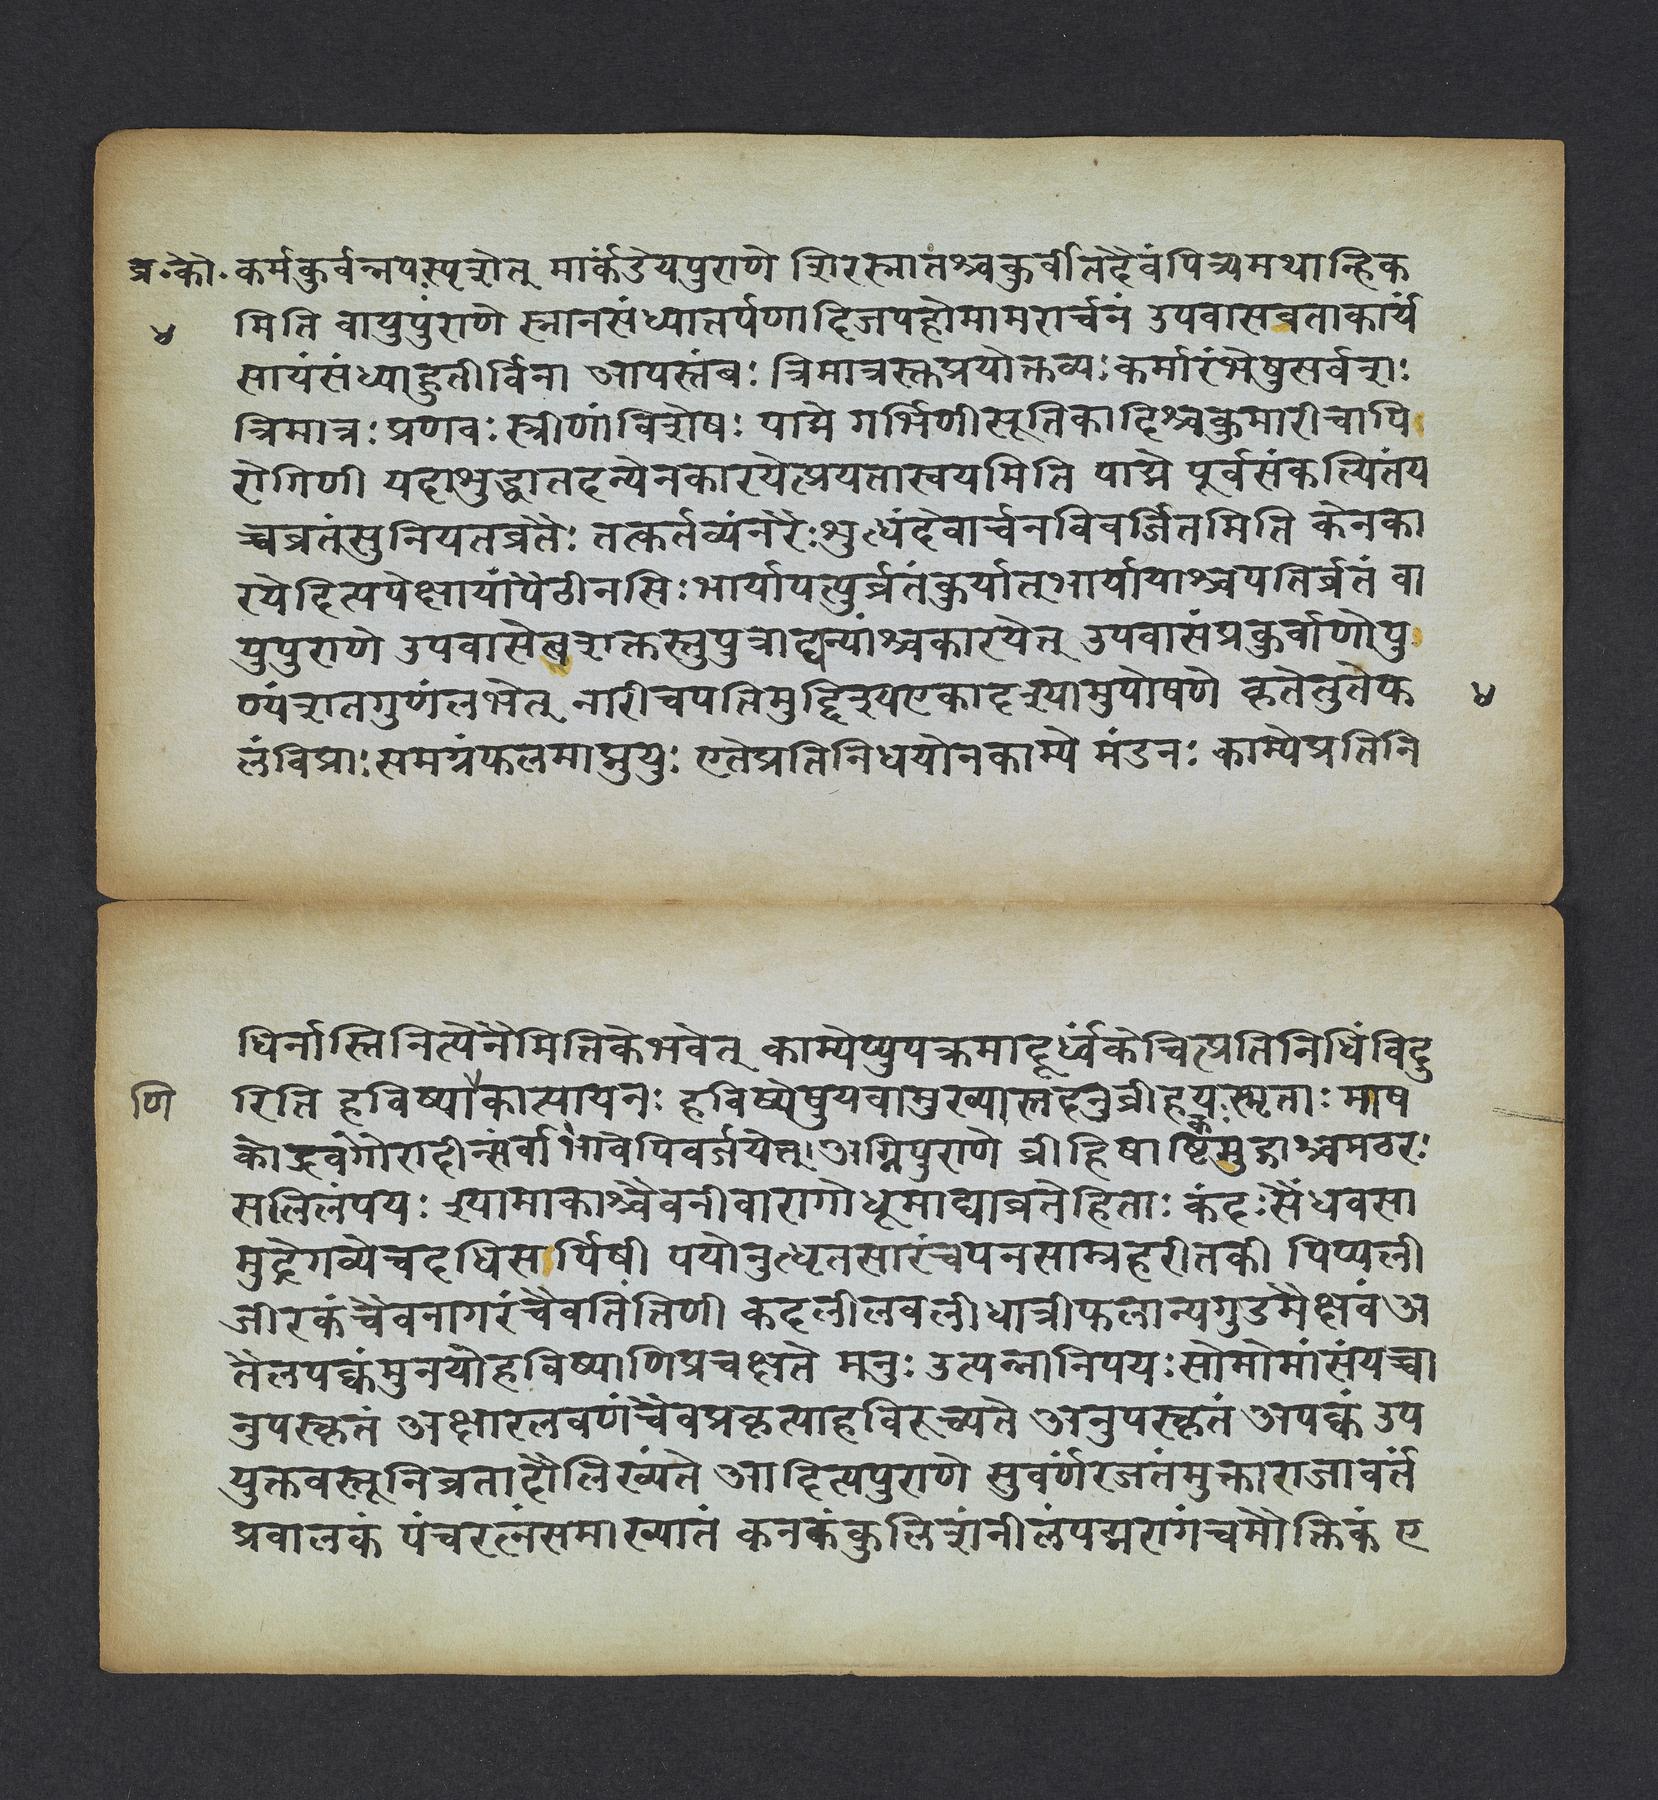 व्र.कौ. कर्मकुर्वन्नपःस्पृशेत् मार्कंडेयपुराणे शिरस्नातश्चकुर्वीतदैवंपित्र्यमथान्हिक
४ मिति वायुपुराणे स्नानसंध्यातर्पणादिजपहोमामरार्चनं उपवासवताकार्यं
सायंसंध्याहुतीर्विना आपस्तंबः त्रिमात्रस्क्तप्रयोक्तव्यः कर्मारंभेषुसर्वशः
त्रिमात्रः प्रणवः स्त्रीणांविशेषः पाद्मे गर्भिणीसूतिकादिश्चकुमारीचापि
रोगिणी यदाशुद्धातदन्येनकारयेत्प्रयतास्वयमिति पाद्मे पूर्वसंकल्पितंय
च्चव्रतंसुनियतव्रतैः तत्कर्तव्यंनरैः शुध्यंदेवार्चनविवर्जितमिति केनका
रयेदित्यपेक्षायांपैठीनसिः भार्यापत्युर्व्रतंकुर्यात्भार्यायाश्चपतिर्व्रतं वा
युपुराणे उपवासेत्वशक्तस्तुपुत्राद्यन्यांश्चकारयेत् उपवासंप्रकुर्वाणोपु
ण्यंशतगुणंलभेत् नारीचपतिमुद्दिश्यएकादश्यामुपोषणे कृतेतुतेफ ४
लंविप्राः समग्रंफलमाप्नुयुः एतेप्रतिनिधयोनकाम्ये मंडनः काम्येप्रतिनि
धिर्नास्तिनित्येनैमित्तिकेभवेत् काम्येप्युपक्रमादूर्ध्वंकेचित्प्रतिनिधिंविदु
णि रिति हविष्याकात्यायनः हविष्येषुयवामुख्यास्तदनुव्रीहयःस्मृताः माष
कोद्रवगौरादीन्सर्वाभावेपिवर्जयेत् । अग्निपुराणे व्रीहिषाष्टिकमुद्गाश्चमठरः
सलिलंपयः श्यामाकाश्चैवनीवारागोधूमाद्याव्रतेहिताः कंदःसैंधवसा
मुद्रेगव्येचदधिसर्पिषी पयोनुध्धृतसारंचपनसाम्रहरीतकी पिप्पली
जीरकंचैवनागरंचैवतिंतिणी कदलीलवलीधात्रीफलान्यगुडमैक्षवं अ
तैलपक्कंमुनयोहविष्याणिप्रचक्षते मनुः उत्पन्नानिपयःसोमोमांसंयच्चा
नुपस्कृतं अक्षारलवणंचैवप्रकृत्याहविरुच्यते अनुपस्कृतं अपक्कं उप
युक्तवस्तूनिव्रतादौलिख्यंते आदित्यपुराणे सुवर्णंरजतंमुक्ताराजावर्तं
प्रवालकं पंचरत्नंसमाख्यातं कनकंकुलिशंनीलंपद्मरागंचमौक्तिकं ए